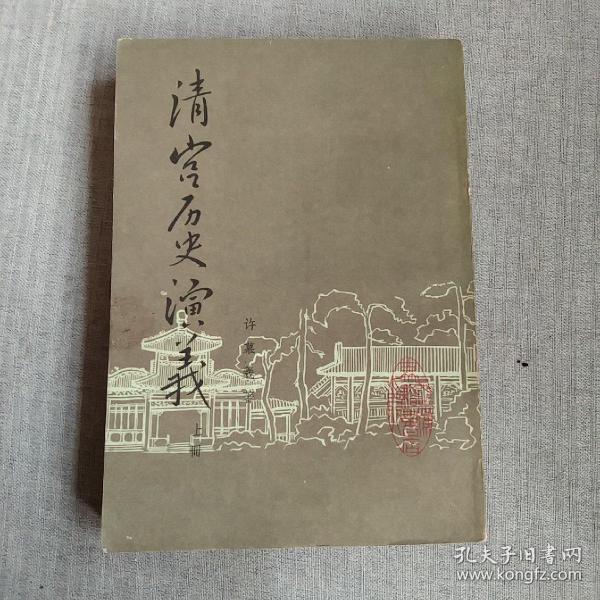 清宫历史演義
上冊
许慕羲 著
孔夫子旧书网
www.kongfz.com